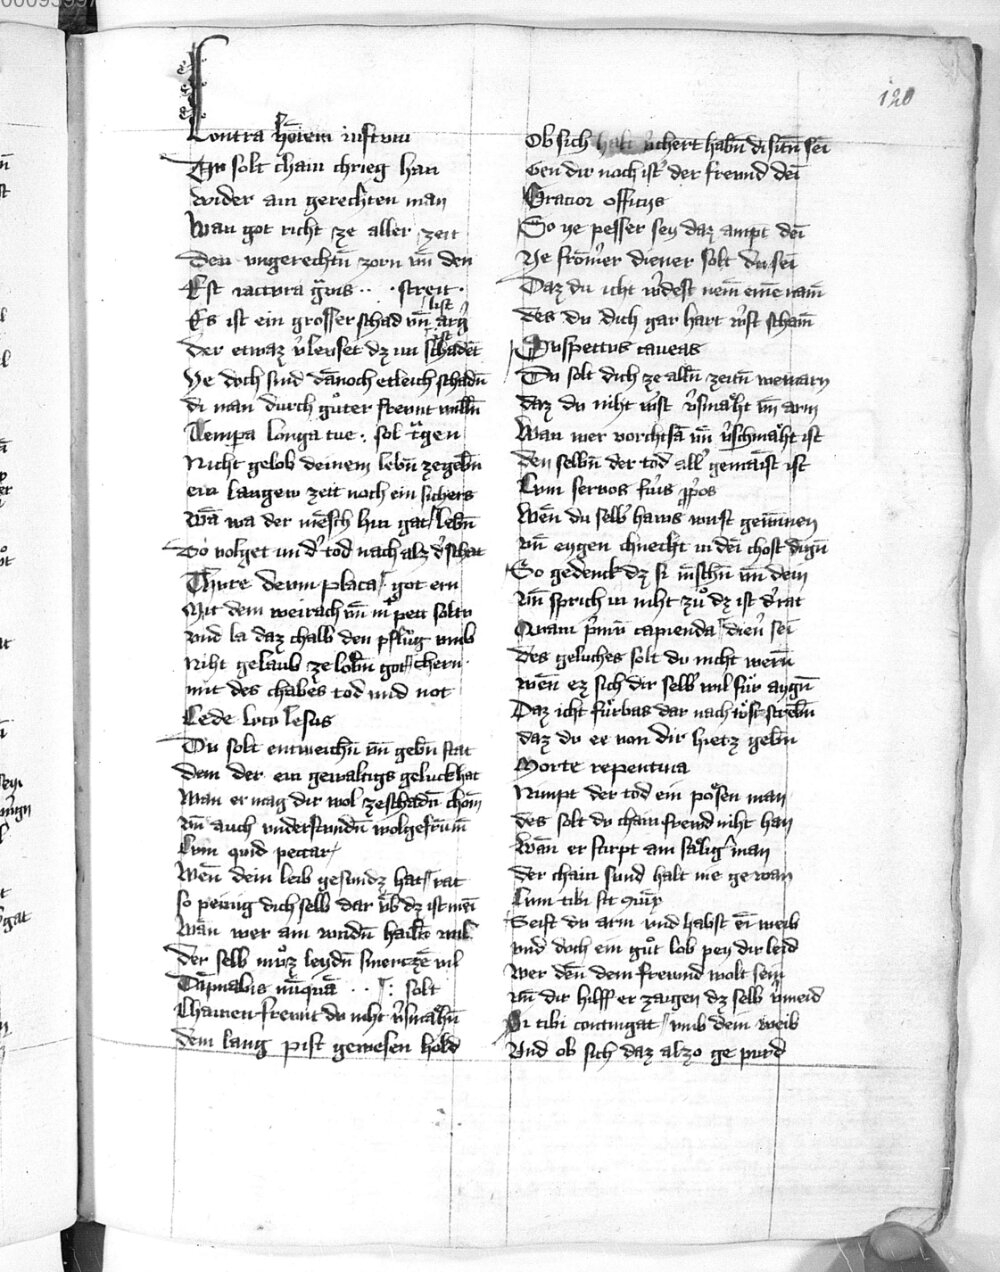 120
Contra hōiem iustum
Du solt chain chrieg han
wider ain gerechten man
Wan got richt ze aller zeit
Den ungerechtn̄ zorn vn̄ den
Est iactura gͣuis streit
Es ist ein grosser schad vn̄ arg list
Der etwaz v̓leuset dz im schadet ist
Ye doch sind dānoch etleich schadn̄
di man durch gůter frewnt willn̄
Tempa longa tue sol tͣgen
Nicht gelob deinem lebn̄ zegebn̄
ein langew zeit noch ein sichers
wā wa der mēsch hin gat lebn̄
Do volget im d̓ tod nach alz d̓ schat
Thure deum placa got ern
Mit dem weirach vn̄ mͦ pett soltu
vnd la daz chalb den pflug vmb
niht gelaub ze lobn̄ got chern
mit des chalbes tod vnd not
Cede loco lesus
Du solt entweichn̄ vn̄ gebn̄ stat
dem der ein gewaltigs geluck hat
Wan er mag dir wol ze schadn̄ chom̄
vn̄ auch vnderstundn̄ wol gefrum̄
Cum quid peccar
Wen̄ dein leib gesundz hat rat
so peinig dich selb dar vb̓ dz ist mei
Wan wer ain wndn̄ hailn̄ wil
der selb muͦz leydn̄ smertzē vil
Dāpnabis nūquā solt
Chainen frewnt du niht v̓smahn̄
dem lang pist gewesen hold
Ob sich halt v̓chert habn̄ di sitn̄ sei
Gen dir noch ist der frewnd dei
Gracior officijs
So ye pesser sey daz ampt dei
Ye from̄er diener solt du sei
Daz du icht w̓dest nem̄ eine nam̄
des du dich gar hart w̓st scham̄
Suspectus caveas
Du solt dich ze alln̄ zeitn̄ wewarn
daz du niht w̓st v̓smaht vn̄ arm
Wan wer vorchtsā vn̄ v̓schmaht ist
den selbn̄ der tod all gemaist ist
Cum servos fu̓is p̄pos
Wen̄ du selb hawͦs wirst gewinnen
vn̄ eygen chnecht in dei chost dign̄
So gedenck dz si mēschn̄ vn̄ dein
vn̄ sprich in niht zů dz ist d̓ rat
Quam p̓mū capienda dien̓ sei
Des geluches solt du nicht wern̄
wen̄ ez sich dir selb wil für aygn̄
Daz icht fürbas dar nach w̓st strebn̄
daz du ee von dir hietz gebn̄
Morte repentina
Nimpt der tod ein posen man
des solt du chain frewd niht han
Wan er stirpt ain salig man
der chain sund halt nie gewan
Cum tibi sit 9iux
Seist du arm vnd habst ei weib
vnd doch ein gůt lob pey dir leid
wer den̄ dem frewnd wolt sein
vn̄ dir hilff er zaigen dz selb v̓meid
Si tibi contingat vmb dein weib
Vnd ob sich daz alzo ge purd